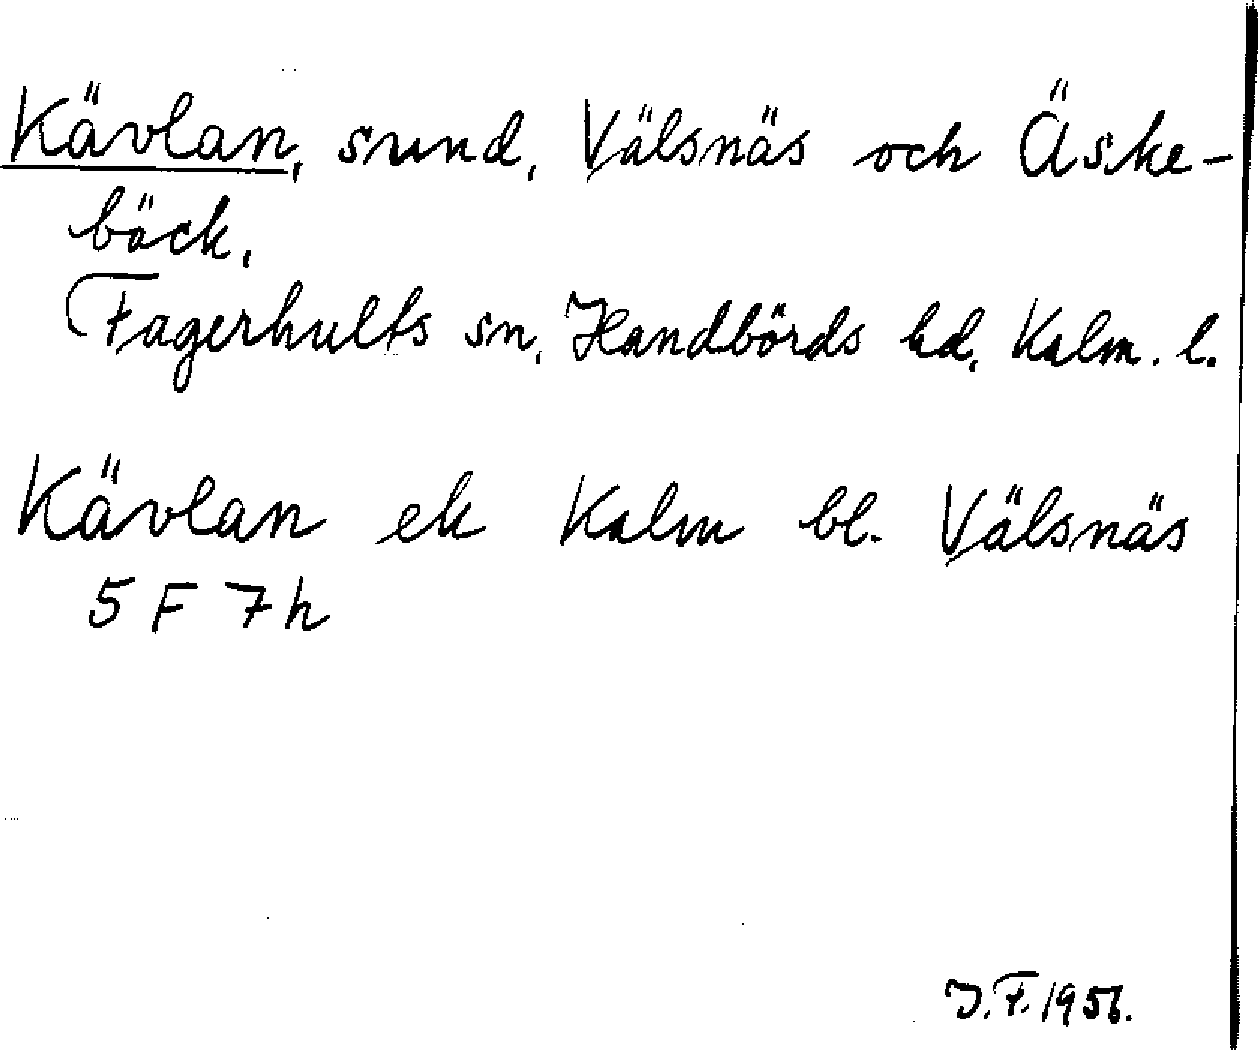 Kävlan, sund, Välsnäs och Äske-
bäck,
Fagerhults sn, Handbörds hd, Kalm. l.
Kävlan ek Kalm bl. Välsnäs
5 F 7h
J.F. 1956.